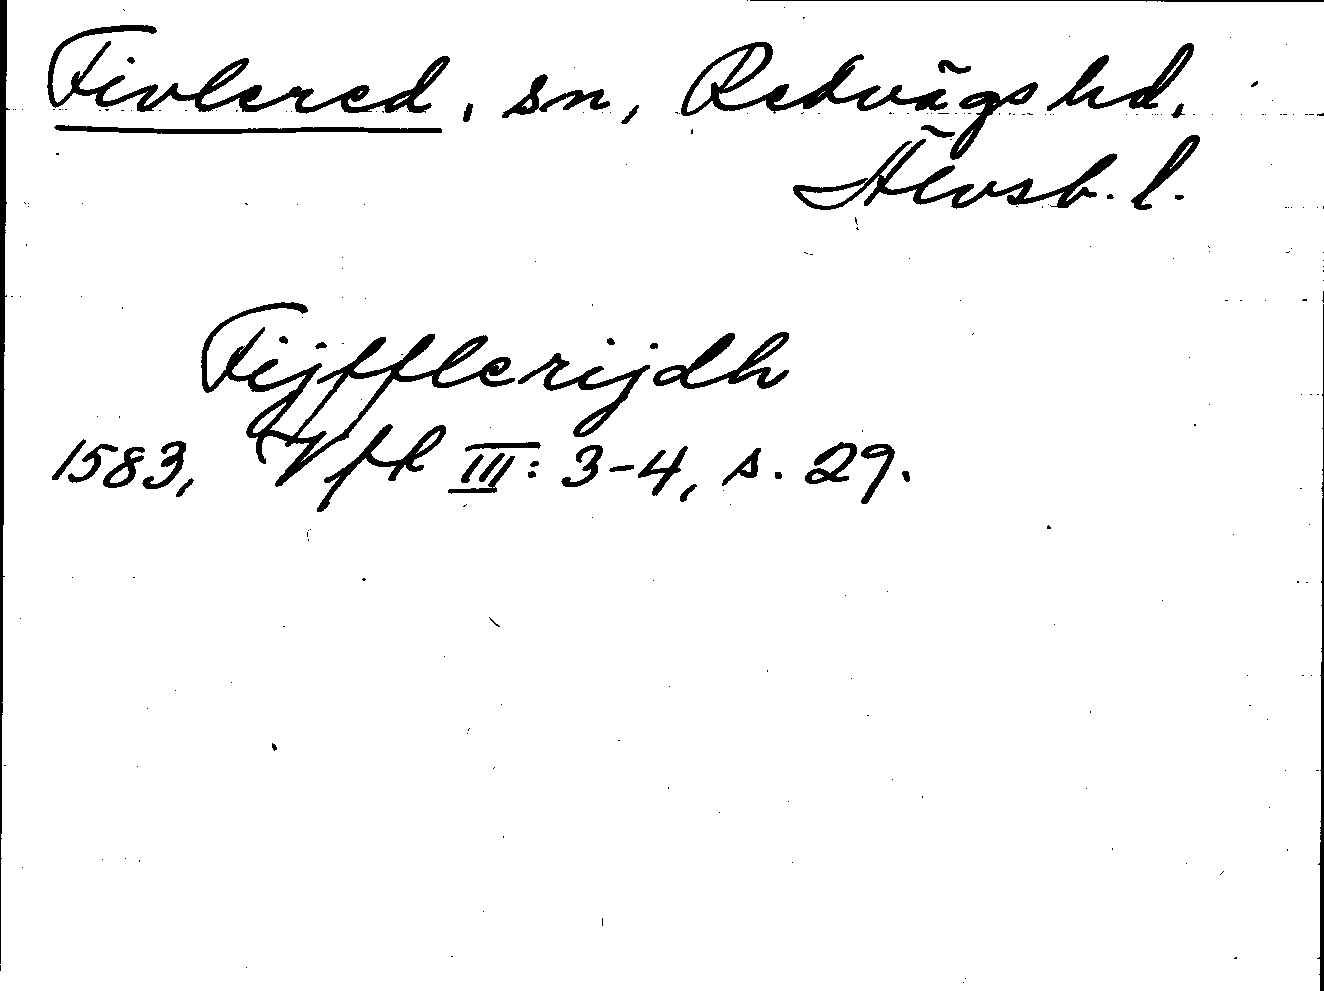 Fivlered, sn, Redvägs hd,
Älvsb. l.
Fijfflerijdh
1583, Vfk III: 3-4, s. 29.